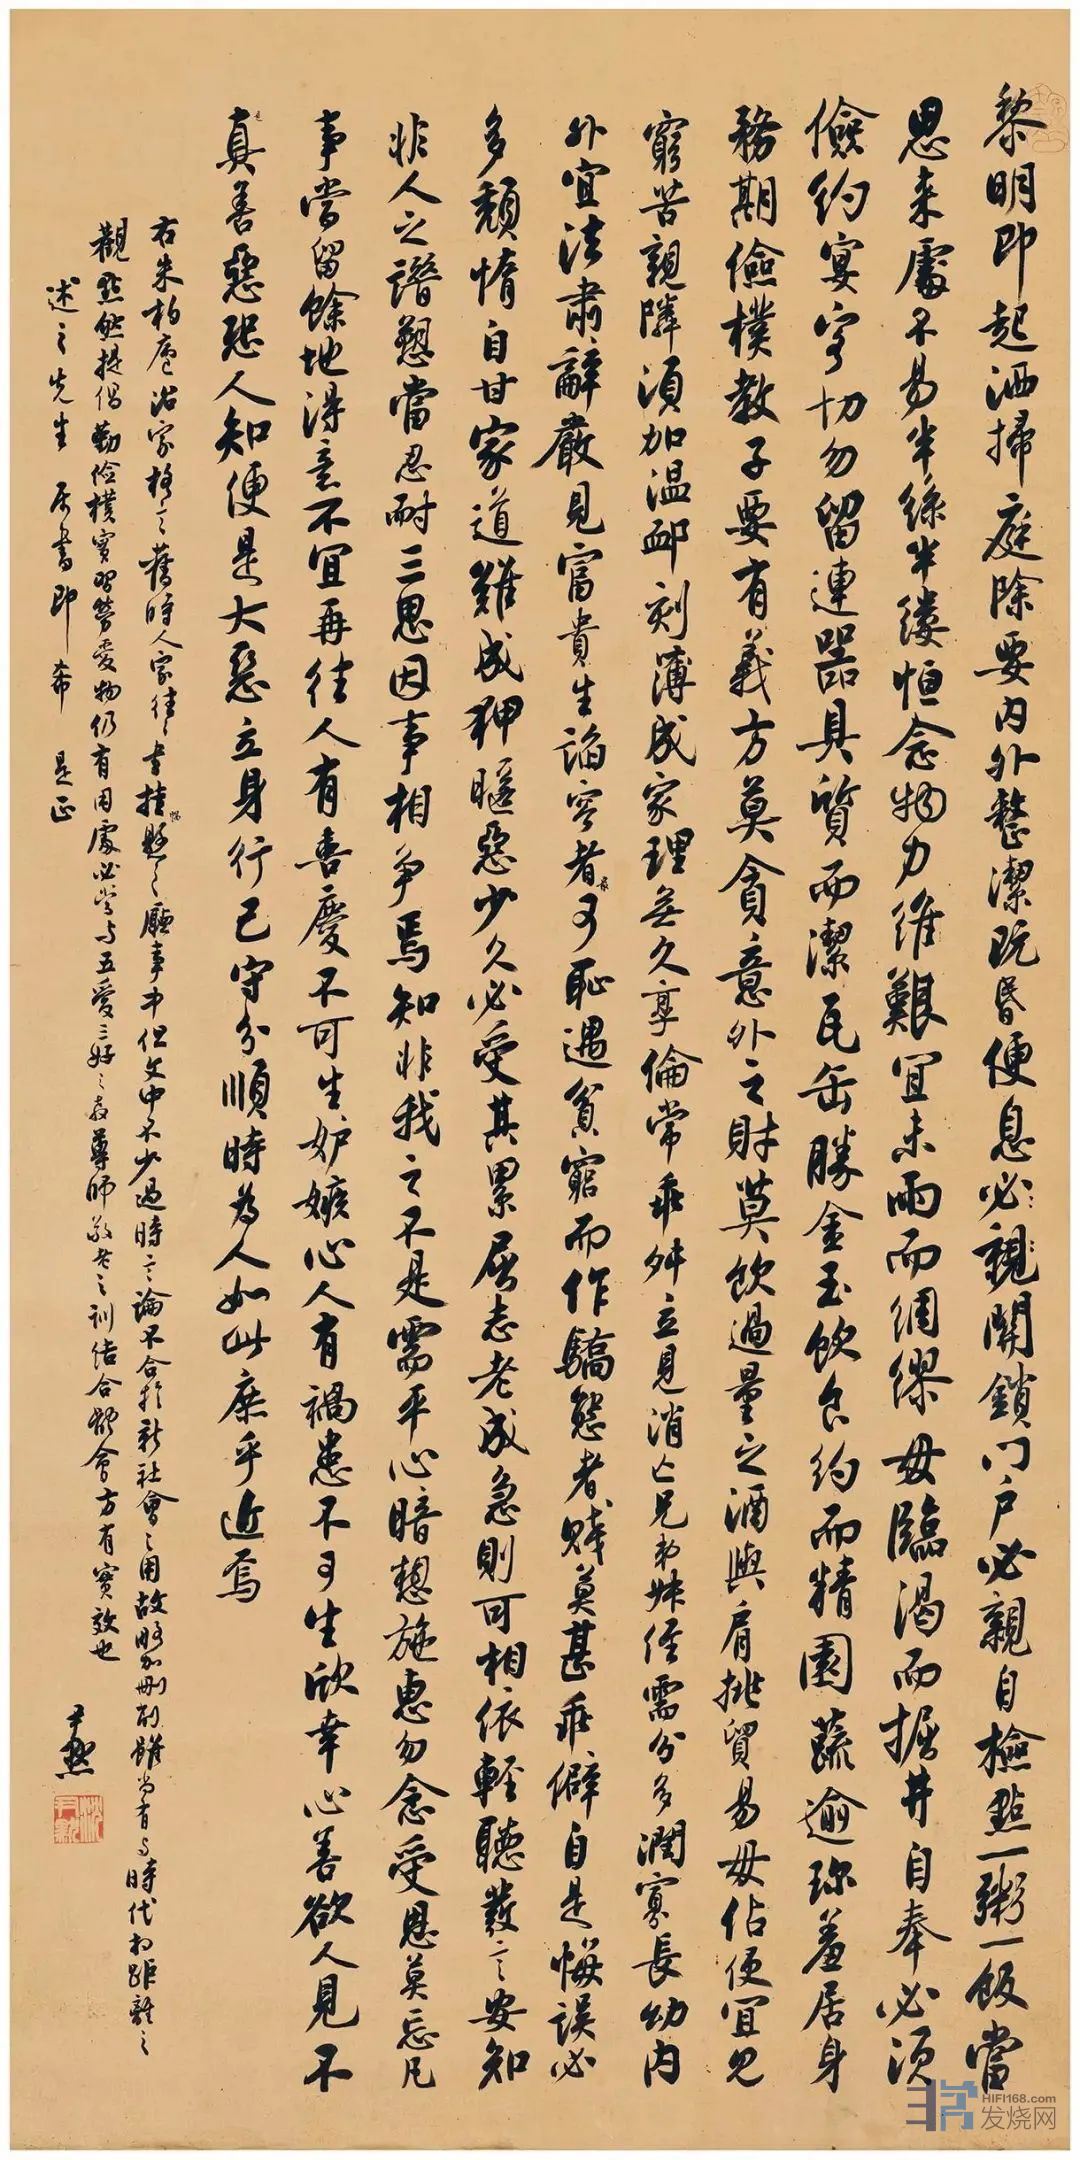 黎明即起洒掃庭除要内外整潔既昏便息必親關鎖门户必親自檢點一粥一飯當
思来處不易半絲半縷恒念物力維艱宜未雨而綢繆毋臨渴而掘井自奉必須
儉約宴客切勿留連器具質而潔瓦缶勝金玉飲食約而精園蔬逾珍羞居身
務期儉樸教子要有義方莫貪意外之財莫飲過量之酒與肩挑貿易毋佔便宜見
窮苦親隣須加温卹刻薄成家理無久享倫常乖舛立見消亡兄弟姊侄需分多潤寡長幼内
外宜法肅辭嚴見富貴生諂容者最可恥遇貧窮而作驕態者賤莫甚乖僻自是悔誤必
多頹惰自甘家道難成狎暱惡少久必受其累屈志老成急則可相依輕聽發言安知
非人之譖愬當忍耐三思因事相争焉知非我之不是需平心暗想施惠勿念受恩莫忘凡
事當留餘地得意不宜再往人有喜慶不可生妒嫉心人有禍患不可生欣幸心善欲人見不
是真善惡恐人知便是大惡立身行己守分順時為人如此庶乎近焉
右朱柏廬治家格言舊時人家往往書挂懸之廳事中但文中不少過時言論不合於新社會之用故略加刪削雖尚有与時代相距離之
觀點然提倡勤儉樸實習勞愛物仍有用處必當与五愛三好之教尊師敬老之訓結合體會方有實效也
述之先生屬書即希 是正
尹默
沈尹默
HIFI168.com
发烧网